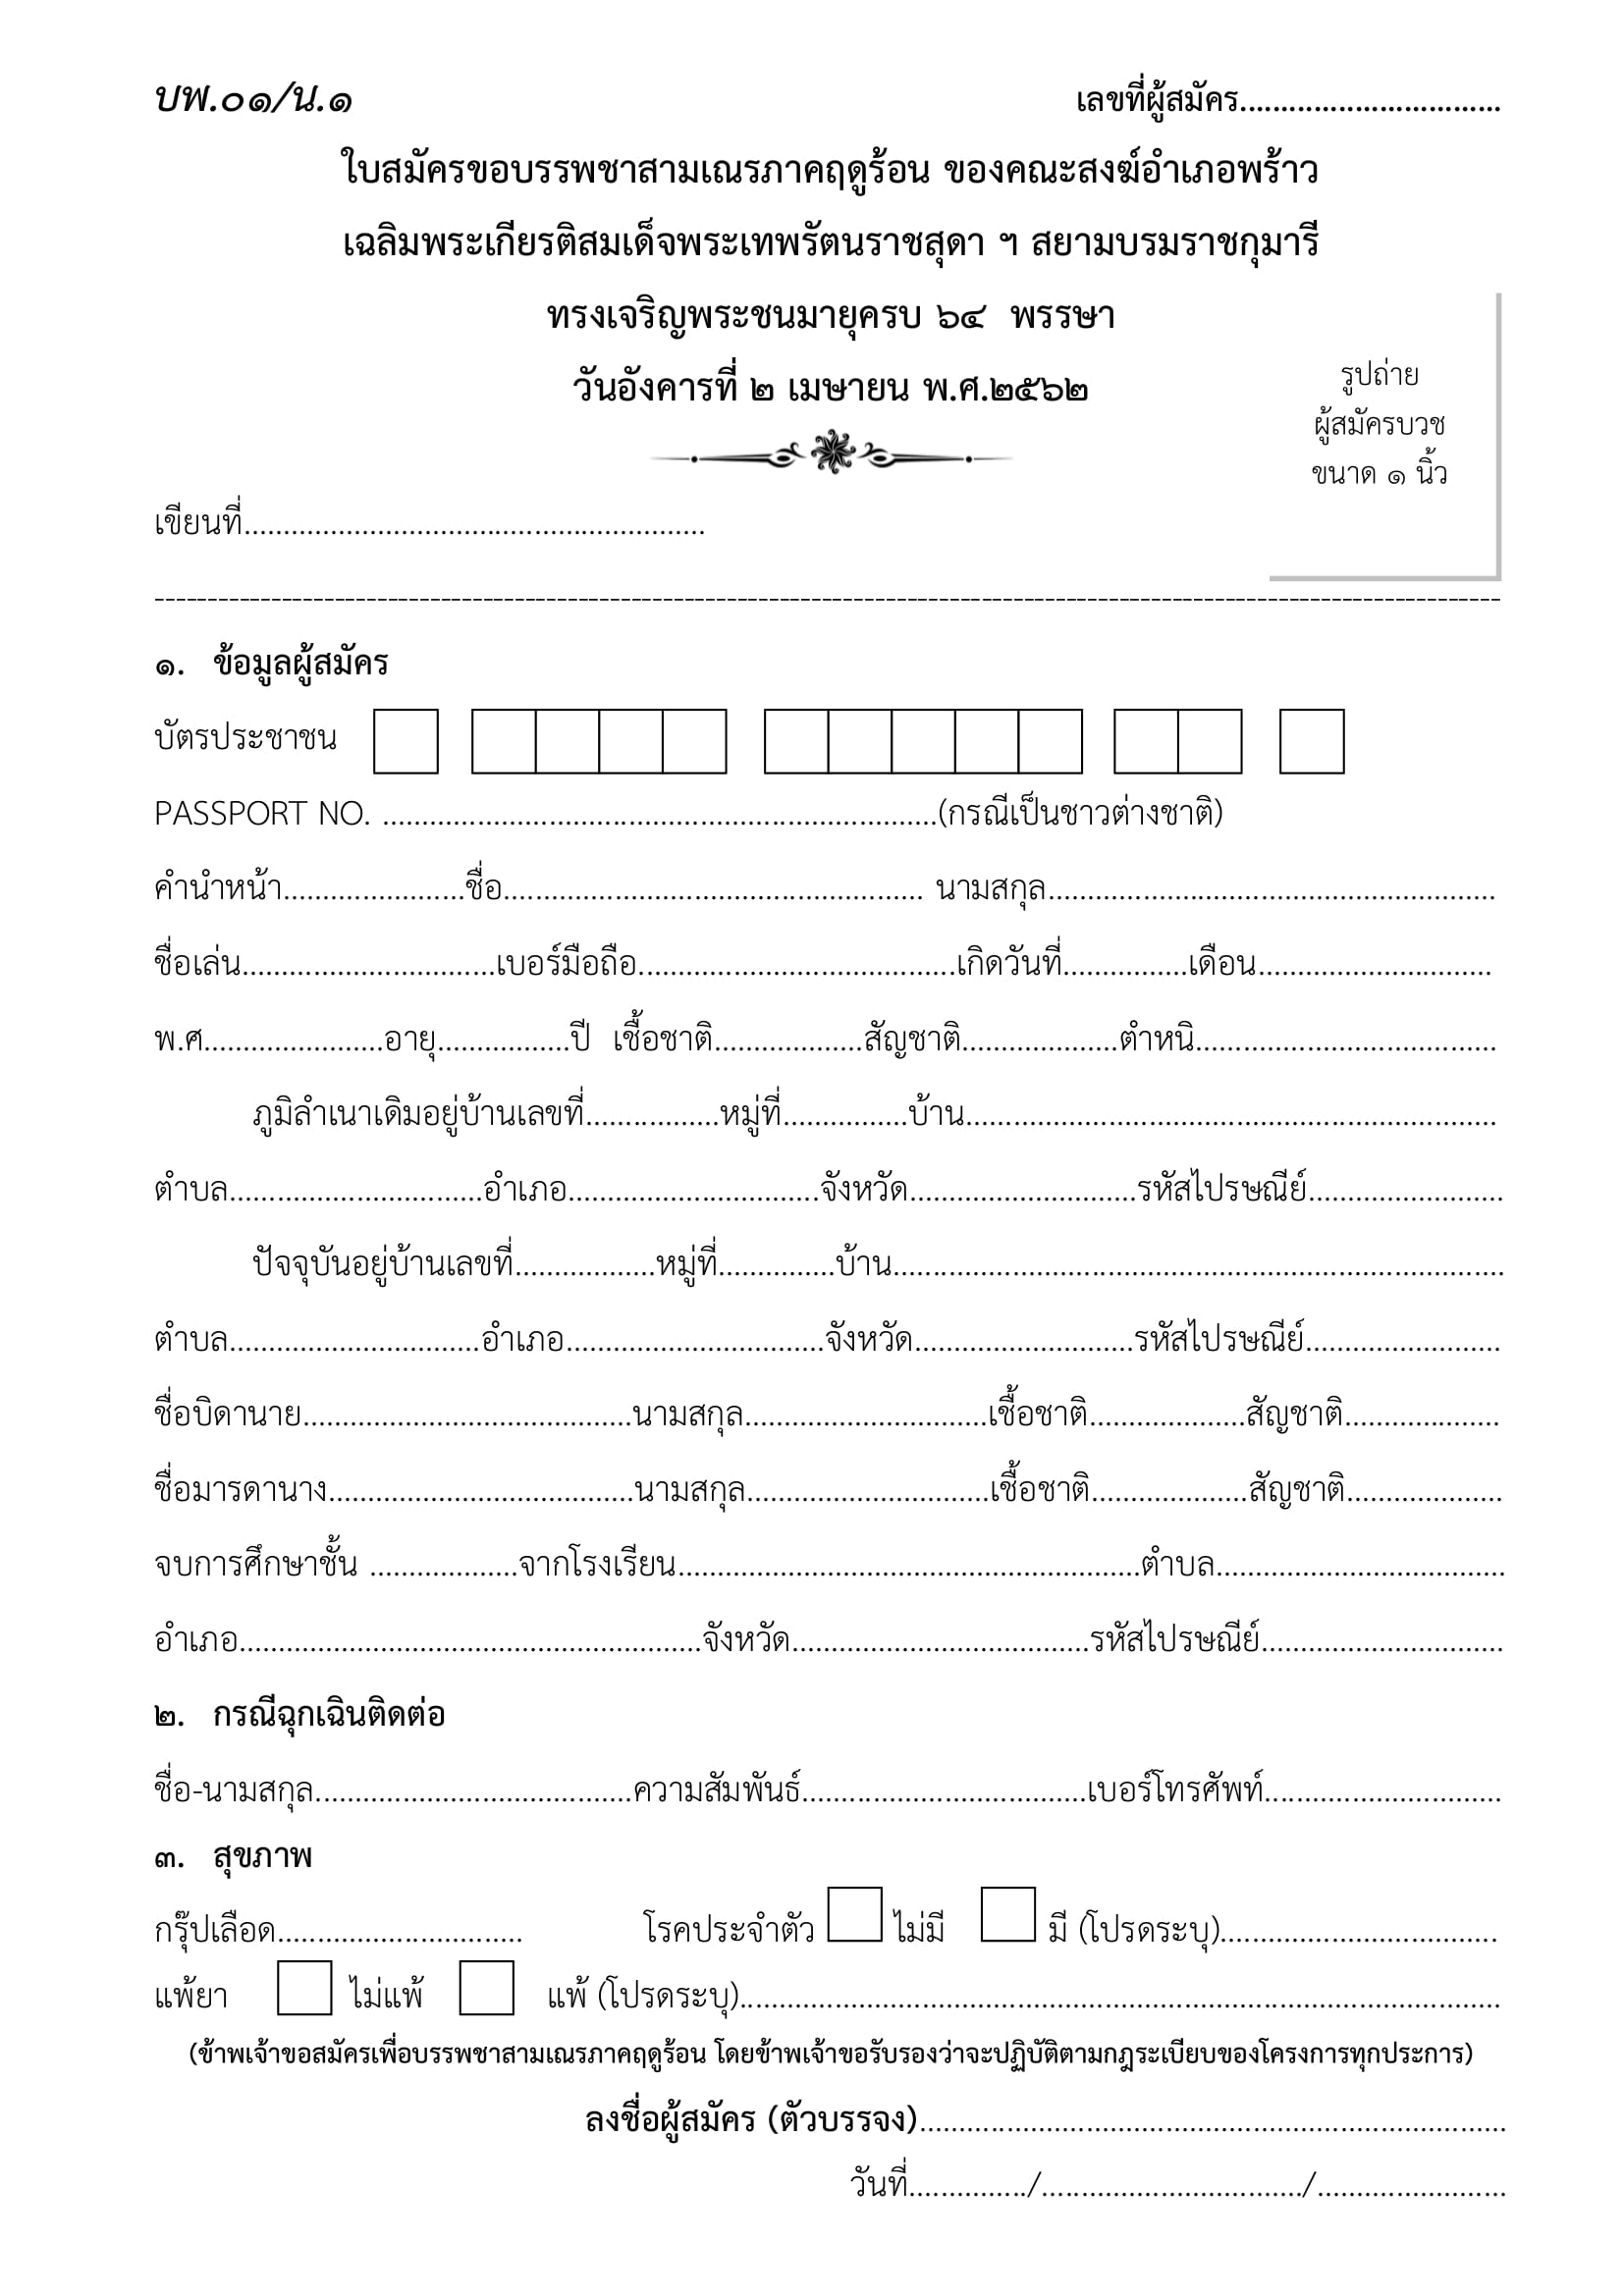 บพ.๐๑/น.๑ เลขที่ผู้สมัคร................................
ใบสมัครขอบรรพชาสามเณรภาคฤดูร้อน ของคณะสงฆ์อำเภอพร้าว
เฉลิมพระเกียรติสมเด็จพระเทพรัตนราชสุดา ฯ สยามบรมราชกุมารี
ทรงเจริญพระชนมายุครบ ๖๔ พรรษา
วันอังคารที่ ๒ เมษายน พ.ศ.๒๕๖๒
รูปถ่าย
ผู้สมัครบวช
ขนาด ๑ นิ้ว
เขียนที่...........................................................
๑. ข้อมูลผู้สมัคร
บัตรประชาชน
PASSPORT NO. .......................................................................(กรณีเป็นชาวต่างชาติ)
คำนำหน้า.......................ชื่อ...................................................... นามสกุล.........................................................
ชื่อเล่น................................เบอร์มือถือ.........................................เกิดวันที่................เดือน..............................
พ.ศ.......................อายุ.................ปี เชื้อชาติ...................สัญชาติ....................ตำหนิ.......................................
ภูมิลำเนาเดิมอยู่บ้านเลขที่.................หมู่ที่................บ้าน....................................................................
ตำบล................................อำเภอ................................จังหวัด.............................รหัสไปรษณีย์.........................
ปัจจุบันอยู่บ้านเลขที่..................หมู่ที่...............บ้าน..............................................................................
ตำบล................................อำเภอ.................................จังหวัด............................รหัสไปรษณีย์.........................
ชื่อบิดานาย..........................................นามสกุล...............................เชื้อชาติ....................สัญชาติ....................
ชื่อมารดานาง.......................................นามสกุล...............................เชื้อชาติ....................สัญชาติ....................
จบการศึกษาชั้น ...................จากโรงเรียน...........................................................ตำบล.....................................
อำเภอ...........................................................จังหวัด......................................รหัสไปรษณีย์...............................
๒. กรณีฉุกเฉินติดต่อ
ชื่อ-นามสกุล.........................................ความสัมพันธ์....................................เบอร์โทรศัพท์..............................
๓. สุขภาพ
กรุ๊ปเลือด............................... โรคประจำตัว ไม่มี มี (โปรดระบุ)...................................
แพ้ยา ไม่แพ้ แพ้ (โปรดระบุ).................................................................................................
(ข้าพเจ้าขอสมัครเพื่อบรรพชาสามเณรภาคฤดูร้อน โดยข้าพเจ้าขอรับรองว่าจะปฏิบัติตามกฎระเบียบของโครงการทุกประการ)
ลงชื่อผู้สมัคร (ตัวบรรจง)...........................................................................
วันที่.............../................................./........................